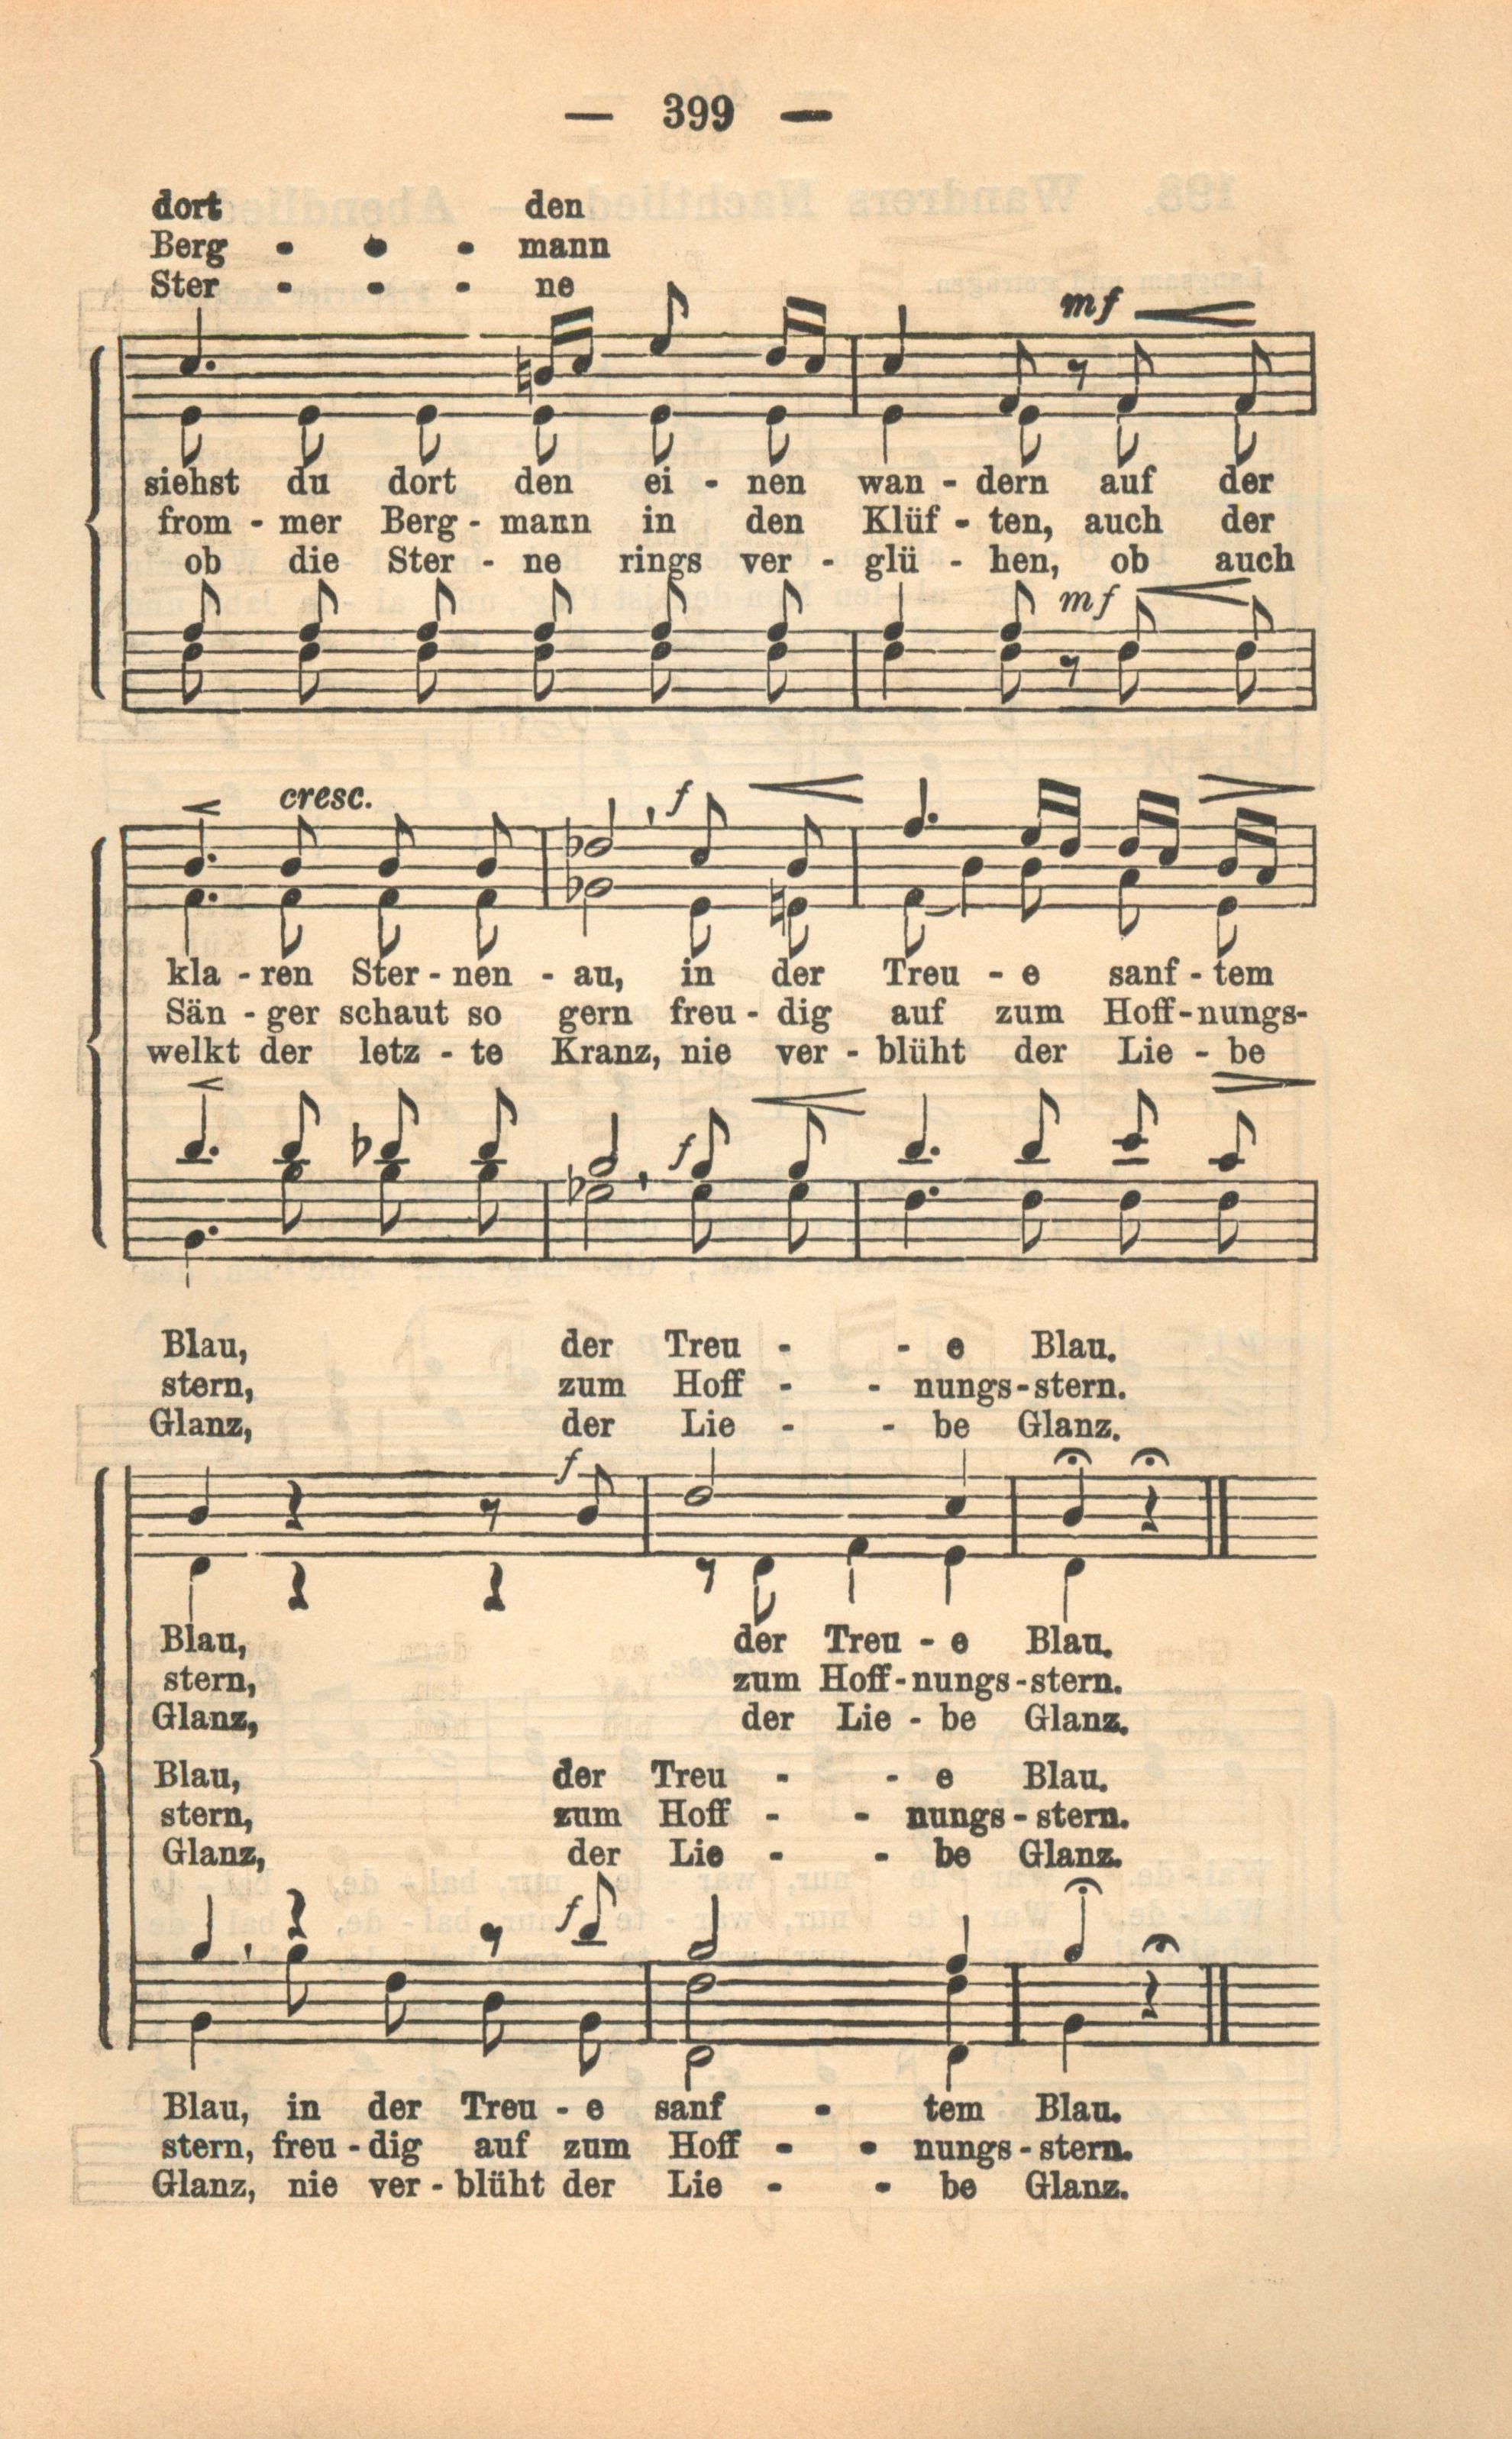 — 399 —
dort den
Berg - - - mann
Ster - - - ne
mf
siehst du dort den ei - nen wan - dern auf der
from - mer Berg - mann in den Klüf - ten, auch der
ob die Ster - ne rings ver - glü - hen, ob auch
mf
cresc. f
kla - ren Ster - nen - au, in der Treu - e sanf - tem
Sän - ger schaut so gern freu - dig auf zum Hoff - nungs-
welkt der letz - te Kranz, nie ver - blüht der Lie - be
f
Blau, der Treu - - e Blau.
stern, zum Hoff - - nungs - stern.
Glanz, der Lie - - be Glanz.
f
Blau, der Treu - e Blau.
stern, zum Hoff - nungs - stern.
Glanz, der Lie - be Glanz.
Blau, der Treu - - e Blau.
stern, zum Hoff - - nungs - stern.
Glanz, der Lie - - be Glanz.
f
Blau, in der Treu - e sanf - tem Blau.
stern, freu - dig auf zum Hoff - - nungs - stern.
Glanz, nie ver - blüht der Lie - - be Glanz.